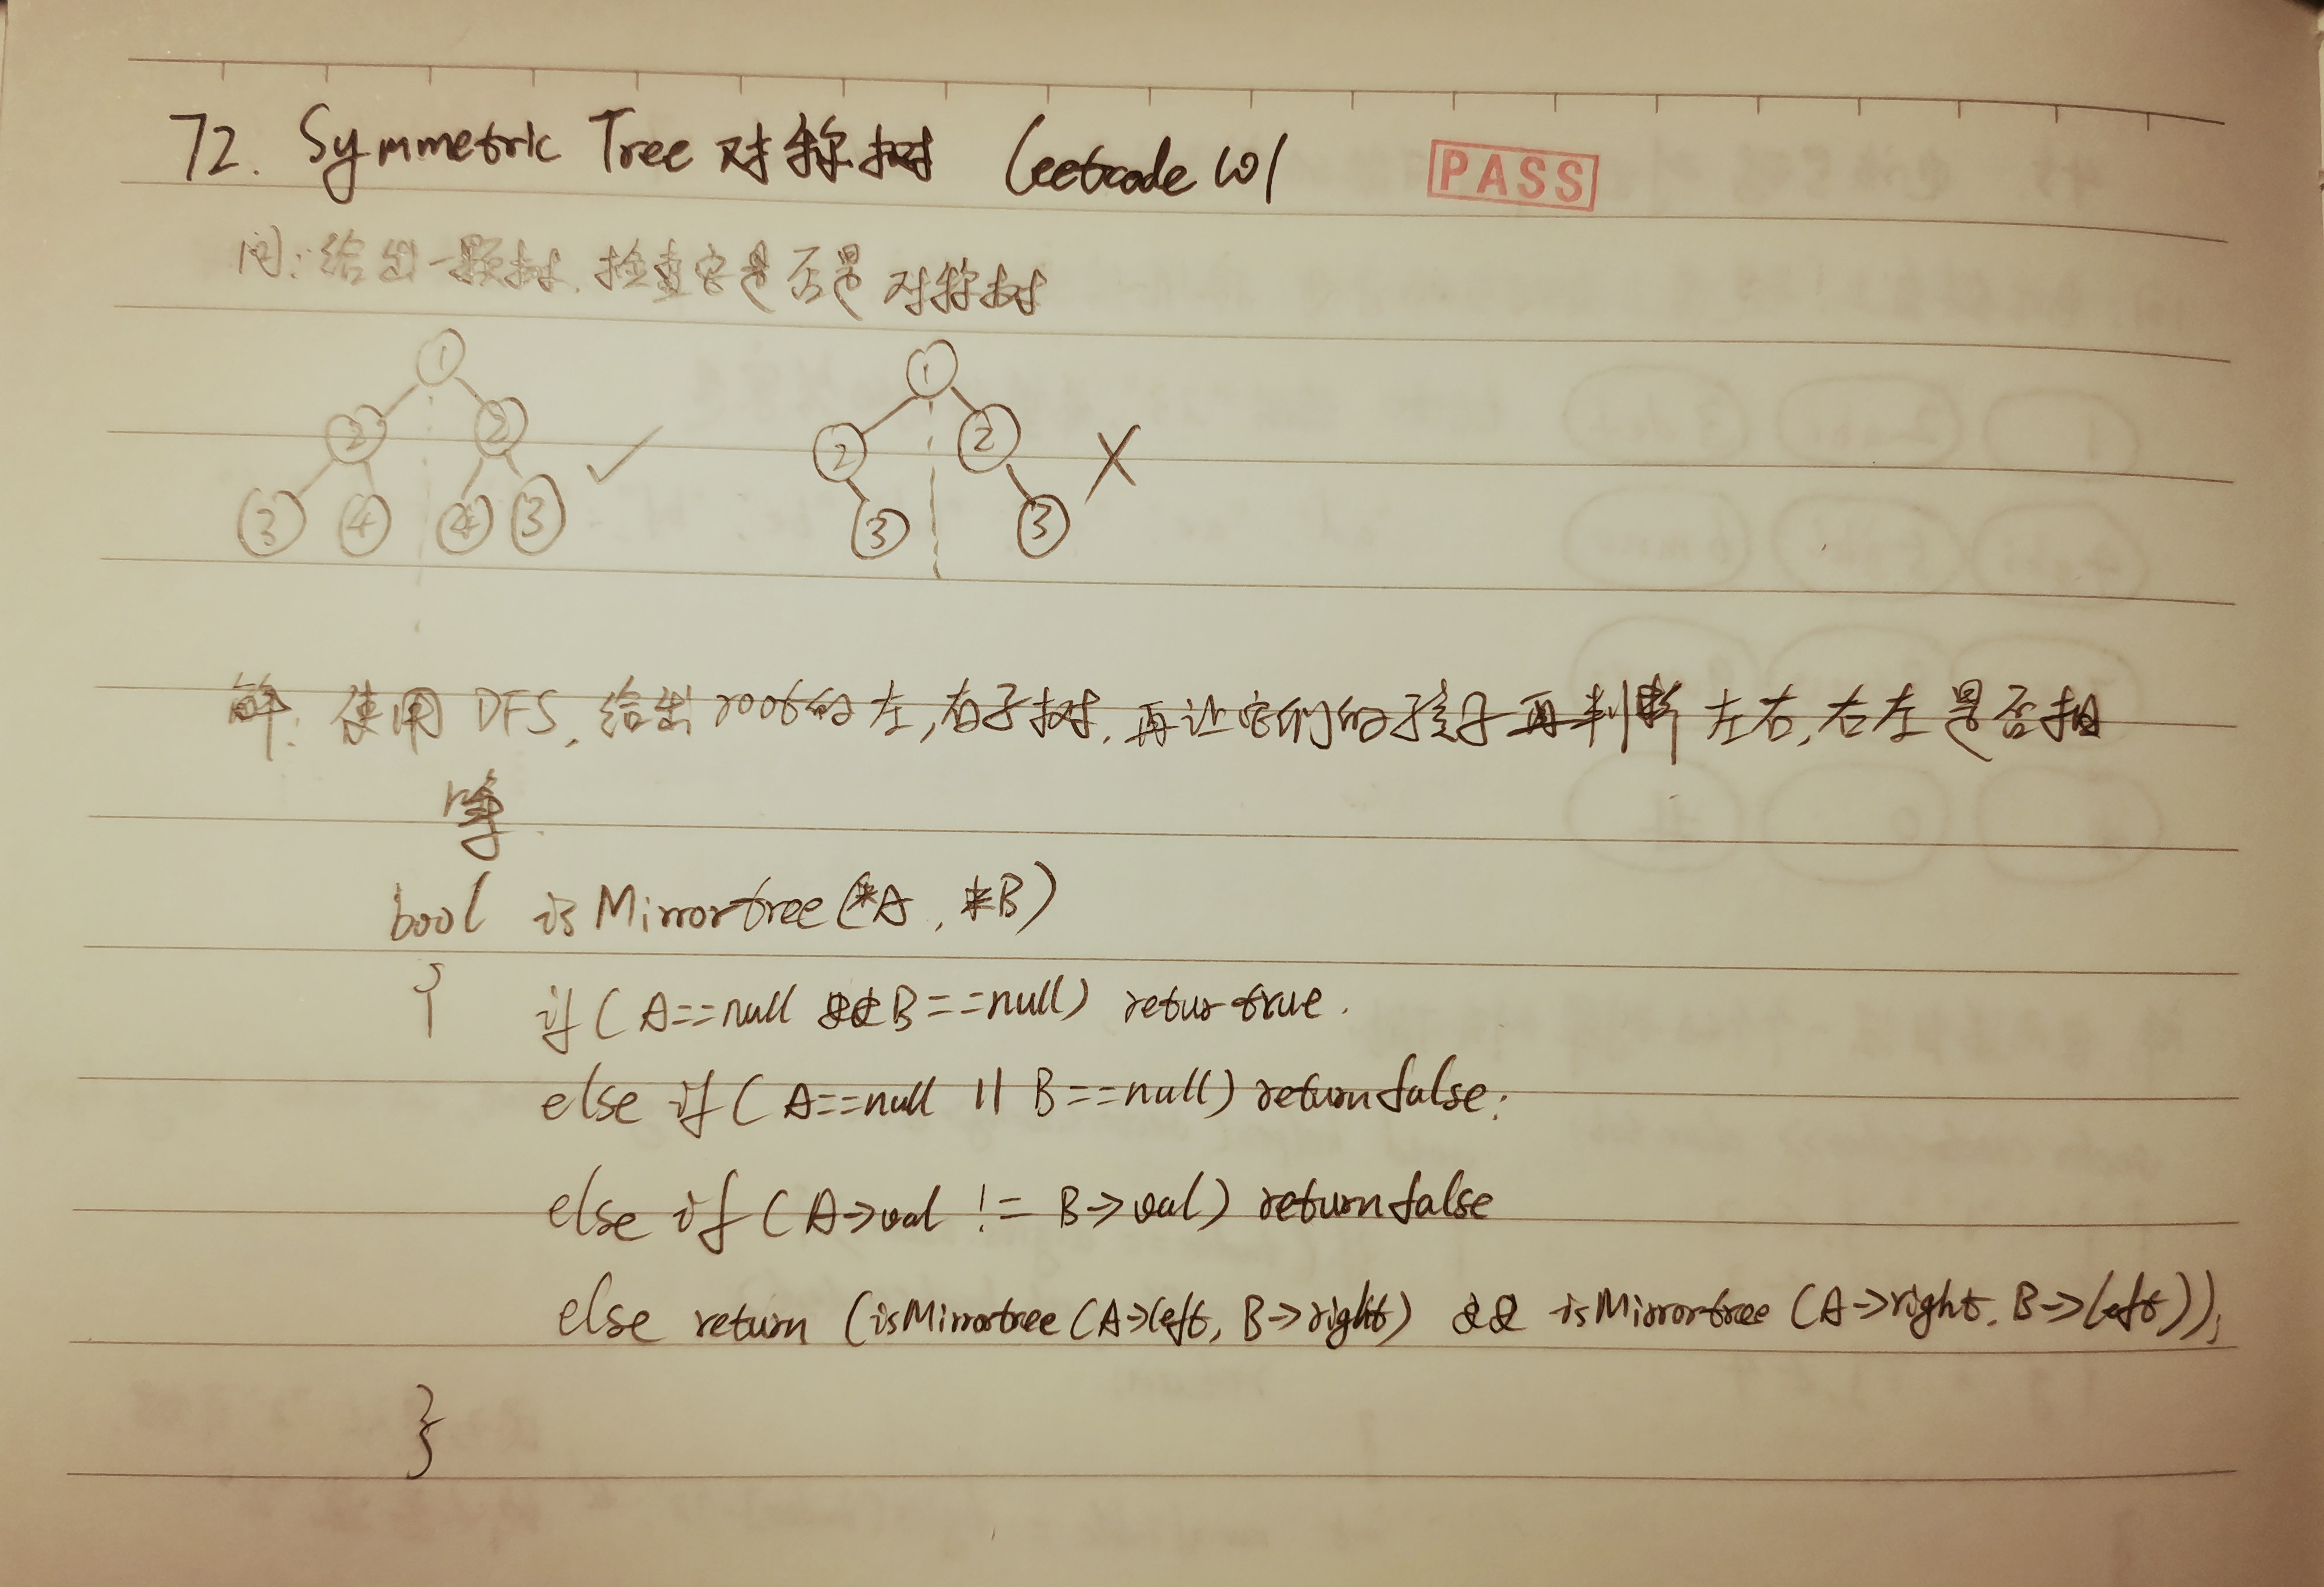 72. Symmetric Tree 对称树 Leetcode 101 PASS
问: 给出一颗树, 检查它是否是对称树
1 1
2 2 2 2
3 4 4 3 3 3
解: 使用 DFS, 给出 root 的左, 右子树, 再让它们的孩子再判断 左右, 右左是否相
等
bool isMirrortree(*A, *B)
{ if (A==null && B==null) retur true.
else if (A==null || B==null) return false;
else if (A->val != B->val) return false
else return (isMirrortree (A->left, B->right) && isMirrortree (A->right, B->left));
}